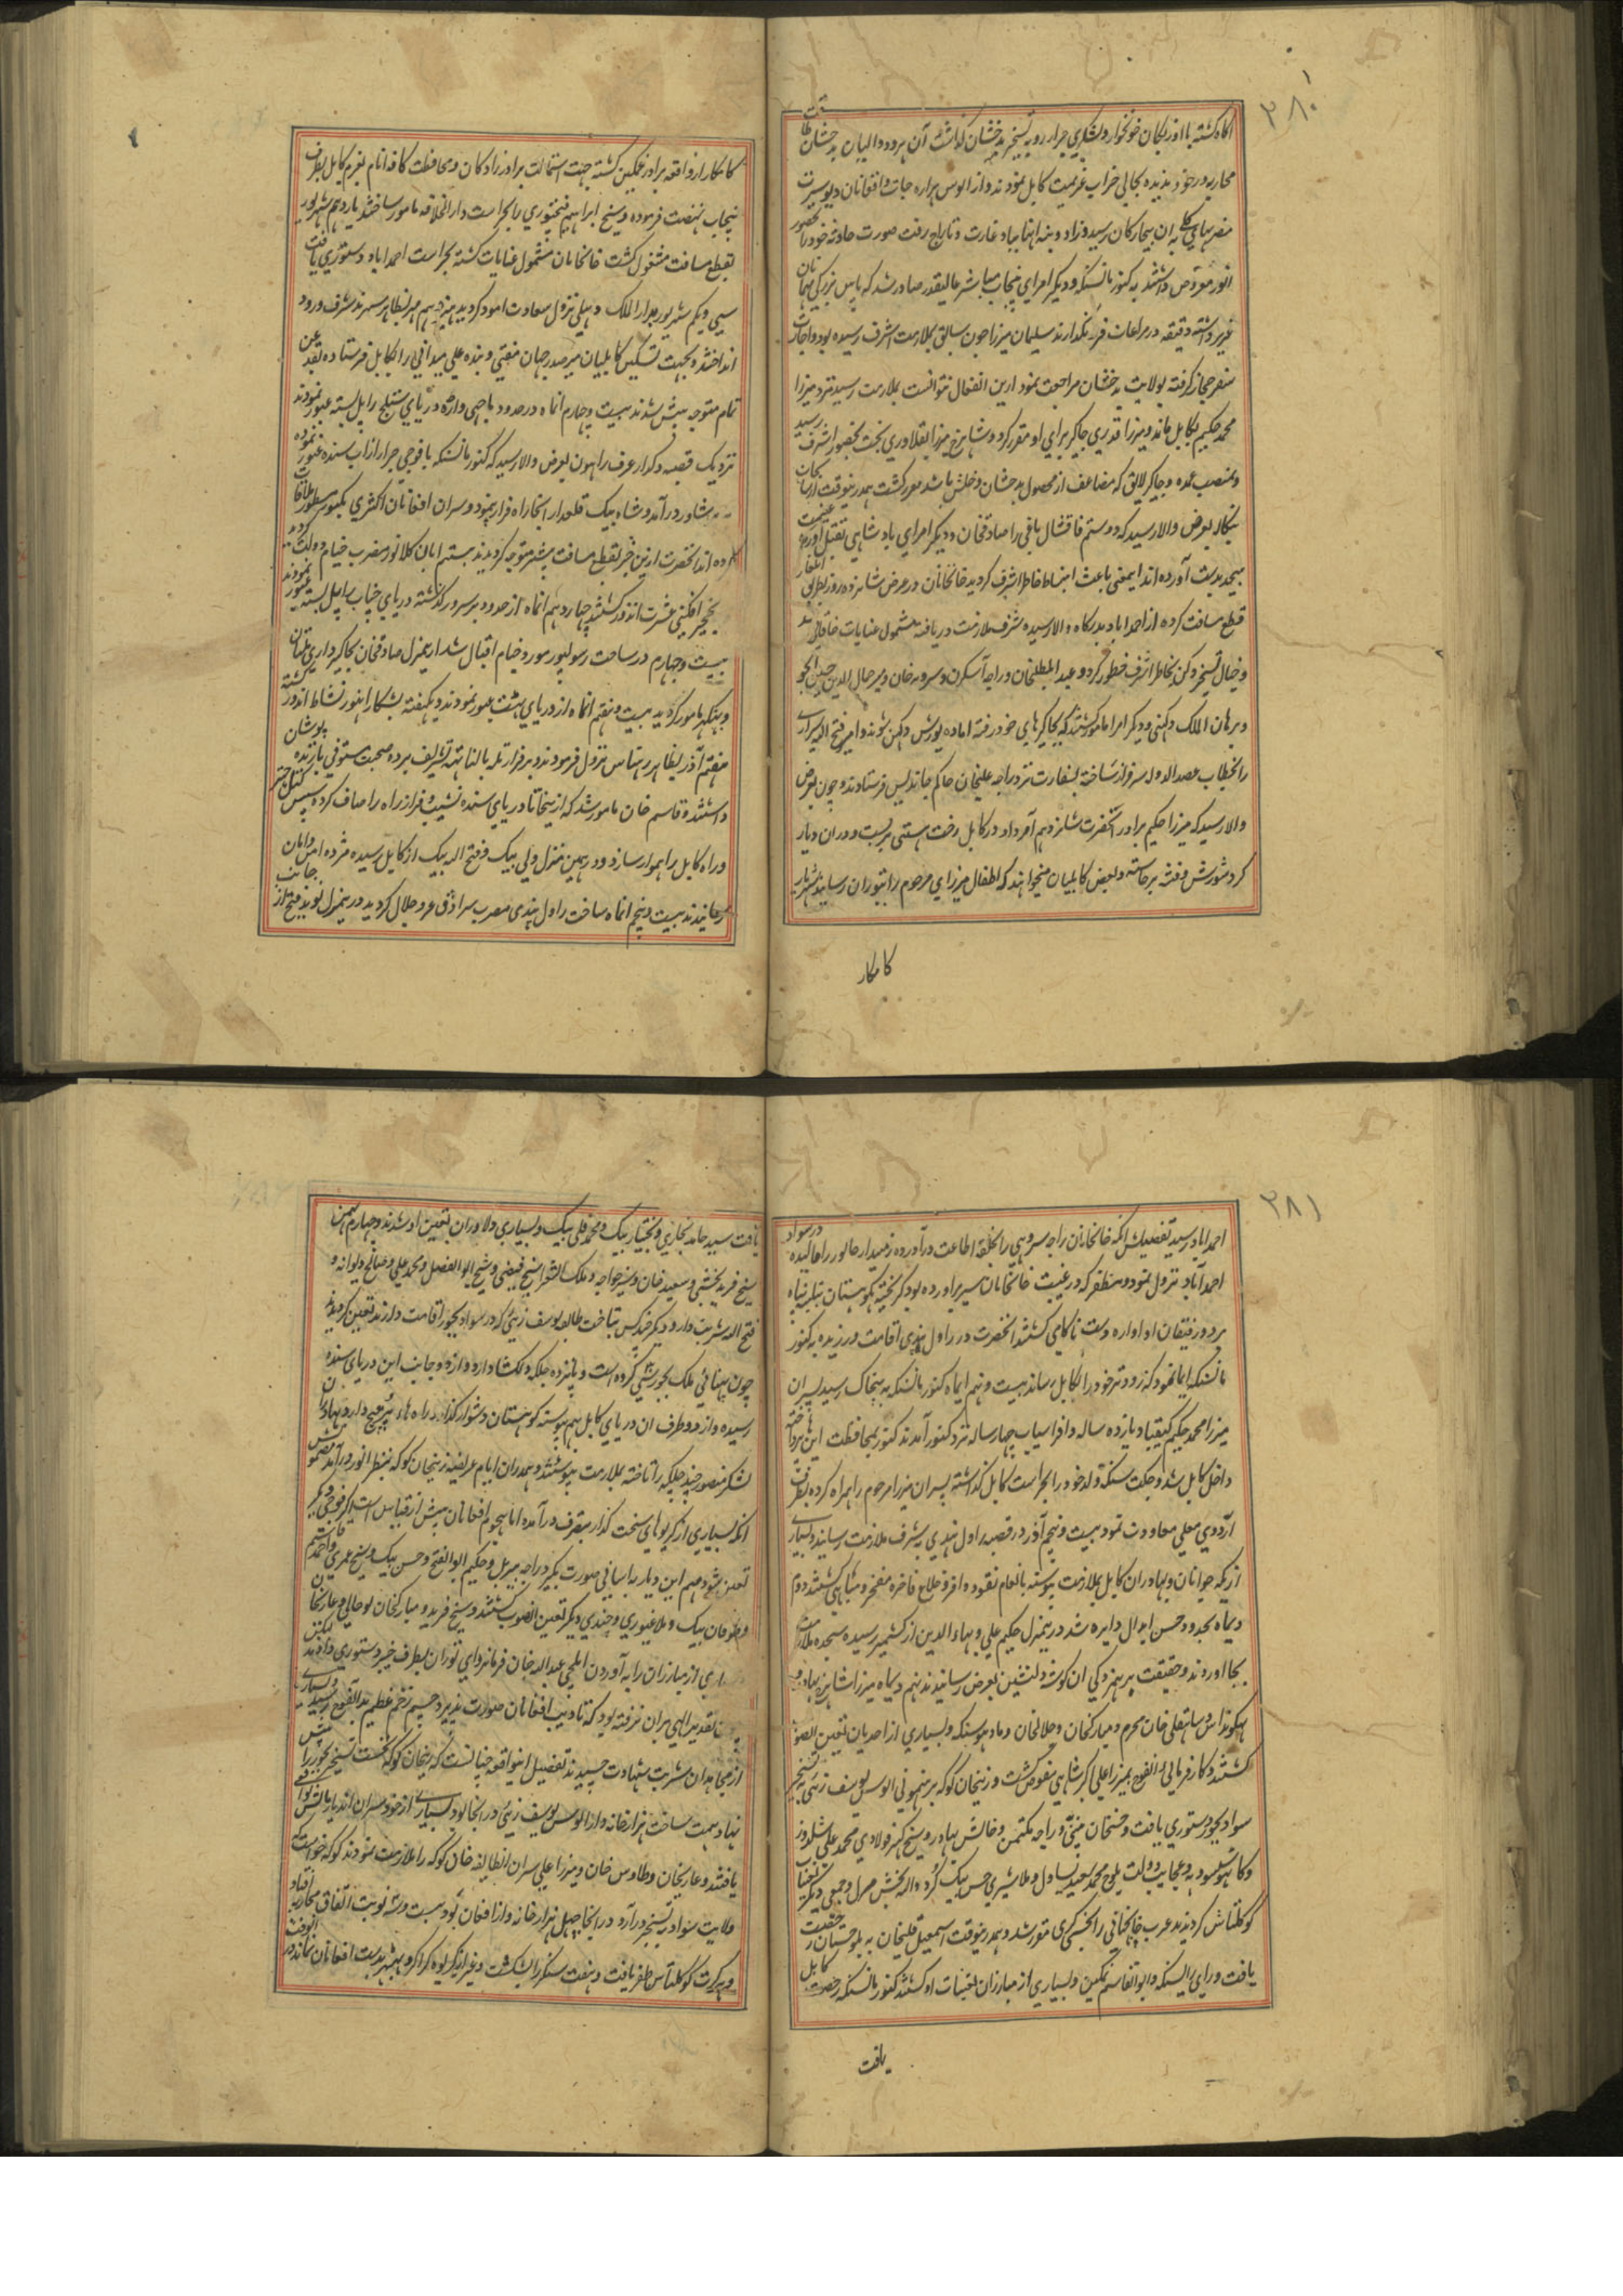 ۳۸۰
آگاه گشته با اوزبکان خونخوار و لشکری جرار رو به تسخیر بدخشان گذاشت آن هر دو والیان بدخشان طاقت
محاربه در خود ندیده بحالی خراب عزیمت کابل نمودند و از الوس هزاره جات و افغانان دیوسیرت
بآن بیچارگان رسید و زاد و بنه آنها بباد غارت و تاراج رفت صورت حادثه خود را بحضور
انور معروض داشتند به کنور مانسنکه و دیگر امرای پنجاب مناشیر عالیقدر صادر شد که پاس بزرگی مهمانان
عزیز داشته دقیقه در مراعات فرونگذارند سلیمان میرزا چون سابق بملازمت اشرف رسیده بود و اجازت
سفر حجاز گرفته بولایت بدخشان مراجعت نمود ازین انفعال نتوانست بملازمت رسید نزد میرزا
محمد حکیم بکابل ماند و میرزا قدری جاگیر برای او مقرر کرد و شاهرخ میرزا بقلاوری بخت بحضور اشرف رسید
و بمنصب عمده و جاگیر لایق که مضاعف از محصول بدخشان و خلش باشد معزز گشت همدرینوقت
بنگاله بعرض والا رسید که دوستم قاقشال باقی را صادقخان و دیگر امرای بادشاهی بقتل آورده غنیمت
بیحد بدست آورده اند اینمعنی باعث انبساط خاطر اشرف گردید خانخانان در عرض شانزده روز بطریق ایلغار
قطع مسافت کرده از احمداباد بدرگاه والا رسیده شرف ملازمت دریافته مشمول عنایات خاقانی شد
و خیال تسخیر دکن بخاطر اشرف خطور کرد و عبدالمطلبخان و راجه آسکرن و سروه خان و میر جمال الدین حسین انجو
و برهان الملک دکنی و دیگر امرا مامور گشتند که بجاگیرهای خود رفته آماده یورش دکن شوند و امیر فتح الله شیرازی
را بخطاب عضدالدوله سرفراز ساخته بسفارت نزد راجه علیخان حاکم خاندیس فرستادند و چون بعرض
والا رسید که میرزا حکیم برادر آنحضرت شانزدهم امرداد در کابل رخت هستی بربست و در آن دیار
گرد شورش و فتنه برخاسته و بعض کابلیان میخواهند که اطفال میرزای مرحوم را بتوران رسانند شهریار
کامکار
کامکار از واقعه برادر غمگین گشته جهت استمالت برادرزادگان و محافظت کافه انام بعزم کابل بطرف
پنجاب نهضت فرموده و شیخ ابراهیم فتحپوری را بحراست دارالخلافه مامور ساختند یازدهم شهریور
بقطع مسافت مشغول گشت خانخانان مشمول عنایات گشته بحراست احمداباد دستوری یافت
سی و یکم شهریور بدارالملک دهلی نزول سعادت آمود گردید هژدهم مهر بظاهر سهرند شرف ورود
انداختند و بجهت تسکین کابلیان میر صدر جهان مفتی و بنده علی میدانی را بکابل فرستاده بقدغن
تمام متوجه پیش شدند بیست و چهارم انماه در حدود ماچهی واره دریای ستلج را پل بسته عبور نمودند
نزدیک قصبه دکدار عرف راهون بعرض والا رسید که کنور مانسنکه با فوجی جرار از آب سنده عبور نموده
به پشاور درآمد و شاه بیک قلعدار آنجا راه فرار پیمود و سران افغانان اکثری بکنور مسطور ملاقات
کرده اند آنحضرت ازین خبر بقطع مسافت بیشتر متوجه گردیدند بیستم ابان کلانور مضرب خیام دولت گردید
بنخجیر افکنی عشرت اندوز گشتند چهاردهم انماه از حدود پرسرور گذشته دریای چناب را پل بسته عبور نمودند
بیست و چهارم در ساحت رسولپور مورد خیام اقبال شد ازینمنزل صادقخان بجاگیرداری ملتان
و بهنکر مامور گردید بیست و نهم انماه از دریای بهت عبور نمودند و یکهفته بشکار انحدود نشاط اندوز گشته
هفتم آذر بظاهر رهتاس نزول فرمودند و بر فراز تله بالناتهه تشریف برده صحبت مستوفی بازنده پوشان
داشتند و قاسم خان مامور شد که ازینجا تا دریای سنده نشیب و فراز راه را صاف کرده سپس کتل خیبر
و راه کابل را هموار سازد و در همین منزل ولی بیک و فتح الله بیک از کابل رسیده مژده امن و امان
رسانیدند بیست و پنجم انماه ساحت راول پندی مضرب سرادق عز و جلال گردید درینمنزل نوید فتح از جانب
۳۸۱
احمداباد رسید تفصیلش آنکه خانخانان راجه سروهی را بحلقه اطاعت درآورده زمیندار جالور را مالیده در سواد
احمدآباد نزول نمود و مظفر که در غیبت خانخانان سر برآورده بود گریخته بکوهستان تلبنه پناه
برد و رفیقان او آواره دشت ناکامی گشتند آنحضرت در راول پندی اقامت ورزیده به کنور
مانسنکه ایما نمود که زود تر خود را بکابل رساند بیست و نهم ایماه کنور مانسنکه به بتخاک رسید پسران
میرزا محمد حکیم کیقباد یازده ساله و افراسیاب چهار ساله نزد کنور آمدند کنور بمحافظت این نزدها
داخل کابل شد و جکت سنکه ولد خود را بحراست کابل گذاشته پسران میرزا مرحوم را همراه کرده بطرف
اردوی معلی معاودت نمود بیست و پنجم آذر در قصبه راول پندی بشرف ملازمت رسانید و بسیاری
از یکه جوانان و بهادران کابل بملازمت پیوسته بانعام نقود وافره و خلاع فاخره مفتخر و مباهی گشتند دوم
دیماه بحدود حسن ابدال دایره شد درینمنزل حکیم علی و بهاءالدین از کشمیر رسیده سجده ملازمت
بجا آوردند و حقیقت پرهنردکی ان گوشه دلنشین بعرض رسانیدند نهم دیماه میرزا شاهرخ بهادر و
بهکونداس و شاهقلی خان محرم و مبارکخان و جلالخان و مادهوسنکه و بسیاری از احدیان تعین الصوب
گشتند و کارفرمائی افواج بمیرزا علی اکبرشاهی مفوض گشت و زینخان کوکه برهنمونی الوس یوسف زئی به تسخیر
سواد بجور دستوری یافت و حسنخان پتنی و راجه مکتمن و خالش بهادر و شیخ کنیر فولادی محمد علی شلدوز
و کاهو سسودیه و عجایب دولت بلوچ محمد سعید یساول و ملا شیری حسن بیک کرد والله بخش مرل و جمعی دیگر
کوکلتاش گردیدند عرب خانجهانی را بخشی گری مقرر شد و همدرینوقت اسمعیل قلیخان به بلوچستان رخصت
یافت و رای رایسنکه و ابوالقاسم تمکین و بسیاری از مبارزان تعینات او گشتند کنور مانسنکه رخصت کابل
یافت
یافت سید حامد بخاری و بختیار بیک و محمد قلی بیک و بسیاری دلاوران بتعین او شدند چهارم بهمن
شیخ فرید بخشی و سعید خان و شیر خواجه و ملک الشعرا شیخ فیضی و شیخ ابوالفضل و محمد علی و صالح دیوانه و
فتح الله شربت دار و دیگر چندکس بتاخت طایفه یوسف زئی که در سواد بجور اقامت دارند تعین گردیدند
چون پهنائی ملک بجور شش گروه است و پانزده جلگه دلکشا دارد و از دو جانب این دریای سنده
رسیده و از دو طرف ان دریای کابل بهم پیوسته کوهستان دشوار گذار و راه های پرپیچ دارد و بهادران
لشکر منصور چند جلگه را تاخته بملازمت پیوستند و همدران ایام عریضه زینخان کوکه بنظر انور درآمد مضمونش
انکه بسیاری از گریوهای سخت گذار بتصرف درآمده اما هجوم افغانان بیش از قیاس است اگر فوجی دیگر
تعین شود مهم این دیار باسانی صورت بگیرد راجه بیربل و حکیم ابوالفتح و حسن بیک و شیخ عمری و احمد قاسم
و طوفان بیک و ملا غیوری و چندی دیگر تعین الصوب گشتند و شیخ فرید و مبارکخان لوحانی و غازیخان
بسیاری از مبارزان را به آوردن ایلچی عبدالله خان فرمانروای توران بطرف خیبر دستوری دادند لیکن
تقدیر الهی بران نرفته بود که تادیب افغانان صورت پذیرد چشم زخم عظیم بدان فوج رسید و بسیاری
از مجاهدان شربت شهادت چشیدند تفصیل اینواقعه چنانست که زینخان کوکه نخست تسخیر بجور را پیش
نهاد همت ساخت هزار خانه وار از الوس یوسف زئی در انجا بود بسیاری از خود سران اندیار مالش وافی
یافتند و غازیخان و طاوس خان و میرزا علی سران انطایفه خان کوکه را ملازمت نمودند کوکه خواست که
ولایت سواد به تسخیر درآرد در انجا چهل هزار خانه وار افغان بود بیست و سه نوبت اتفاق محاربه افتاد
و هر کرت کوکلتاش ظفر یافت و هفت سنگر را شکست و غیر از گریوه کراکر و بنیر بدست افغانان نماند درانوقت